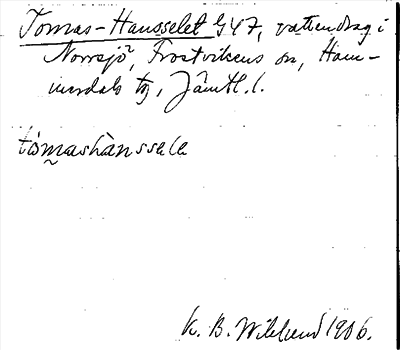 Tomas-Hansselet G47, vattendrag i
Norrsjö, Frostvikens sn, Ham-
merdals tg, Jämtl. l.
tomashànssele
K. B. Wiklund 1906.